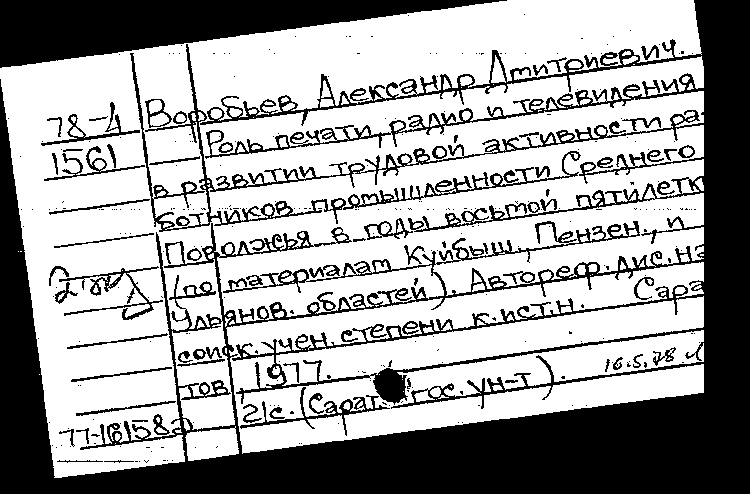 78-4 Воробьев, Александр Дмитриевич.
1561 Роль печати, радио и телевидения
в развитии трудовой активности ра-
ботников промышленности Среднего
Поволжья в годы восьмой пятилетк
(по материалам Куйбыш., Пензен., и
Ульянов. областей). Автореф. дис. на
соиск. учен. степени к.ист.н. Сара
тов, 1977.
21с. (Сарат. гос. ун-т). 16.5.78
77-16158а